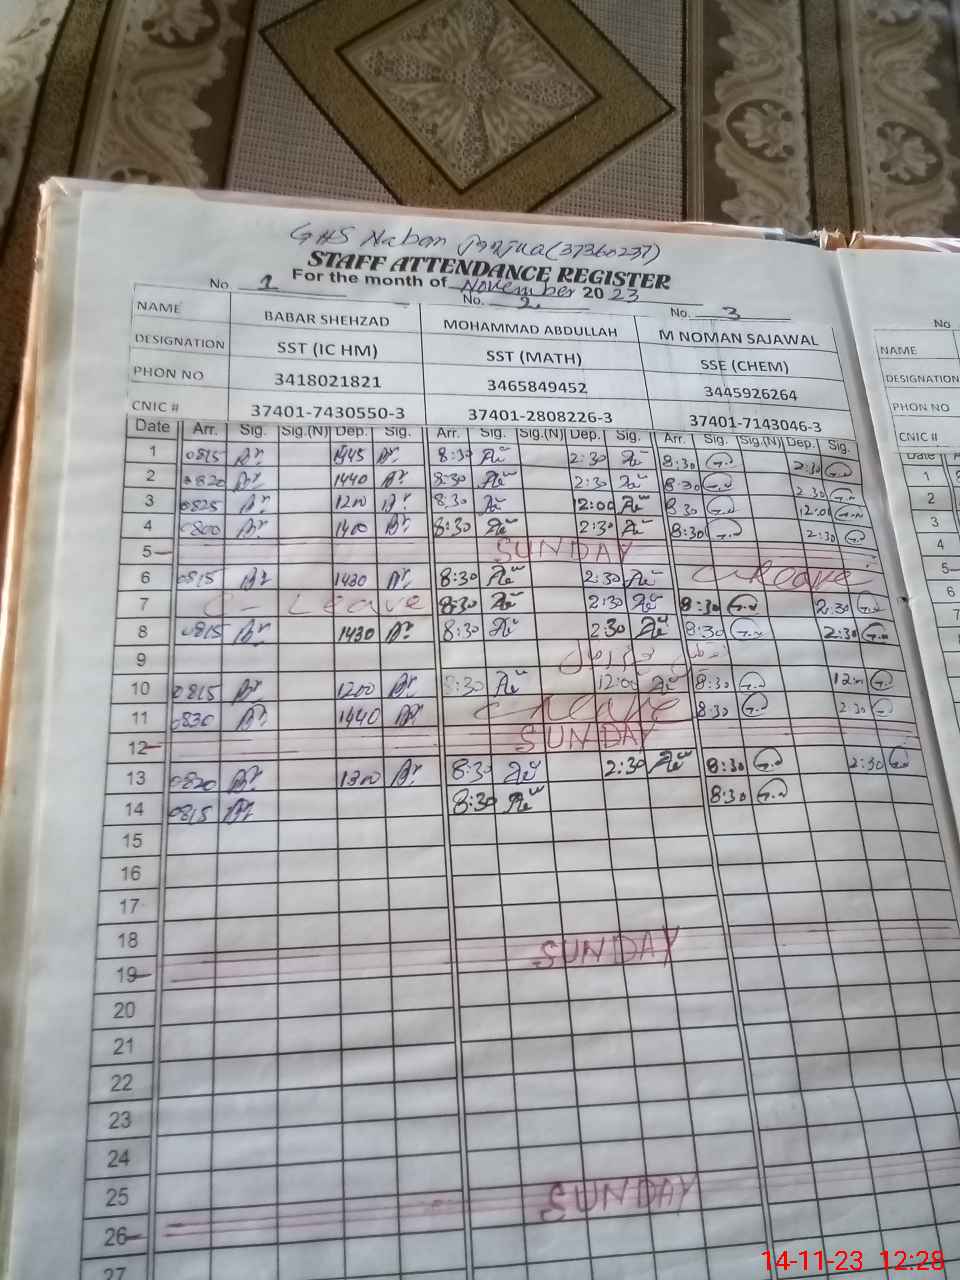 GHS Naban Janjua (37360237)
STAFF ATTENDANCE REGISTER
For the month of November 2023
No. 1 No. 2 No. 3 No
NAME BABAR SHEHZAD MOHAMMAD ABDULLAH M NOMAN SAJAWAL NAME
DESIGNATION SST (IC HM) SST (MATH) SSE (CHEM) DESIGNATION
PHON NO 3418021821 3465849452 3445926264 PHON NO
CNIC # 37401-7430550-3 37401-2808226-3 37401-7143046-3 CNIC #
Date Arr. Sig. Sig.(N) Dep. Sig. Arr. Sig. Sig.(N) Dep. Sig. Arr. Sig. Sig.(N) Dep. Sig. Date
1 0815 1445 8:30 2:30 8:30 2:30 1
2 0820 1440 8:30 2:30 8:30 2:30 2
3 0825 1200 8:30 12:00 8:30 12:00 3
4 0800 1400 8:30 2:30 8:30 2:30 4
5 SUNDAY 5
6 0815 1430 8:30 2:30 C leave 6
7 C - Leave 8:30 2:30 8:30 2:30 7
8 0815 1430 8:30 2:30 8:30 2:30 8
9
10 0815 1200 8:30 12:00 8:30 12:00
11 0830 1440 C leave 8:30 2:30
12 SUNDAY
13 0820 1300 8:30 2:30 8:30 2:30
14 0815 8:30 8:30
15
16
17
18
19 SUNDAY
20
21
22
23
24
25
26 SUNDAY
27
14-11-23 12:28